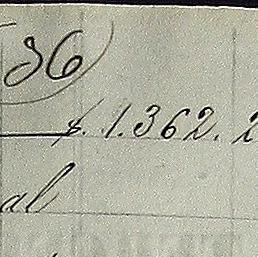 36
$. 1.362. 2
al